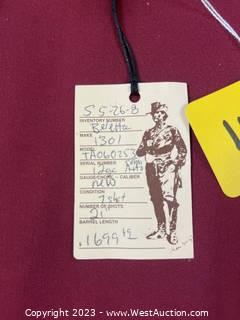 SS-26-B
INVENTORY NUMBER
Beretta
MAKE
1301
MODEL
SERIAL NUMBER
12ga
GAUGE/CHOKE - CALIBER
NEW
CONDITION
7 shot
NUMBER OF SHOTS
21"
BARREL LENGTH
$1699
Copyright 2023 - www.WestAuction.com